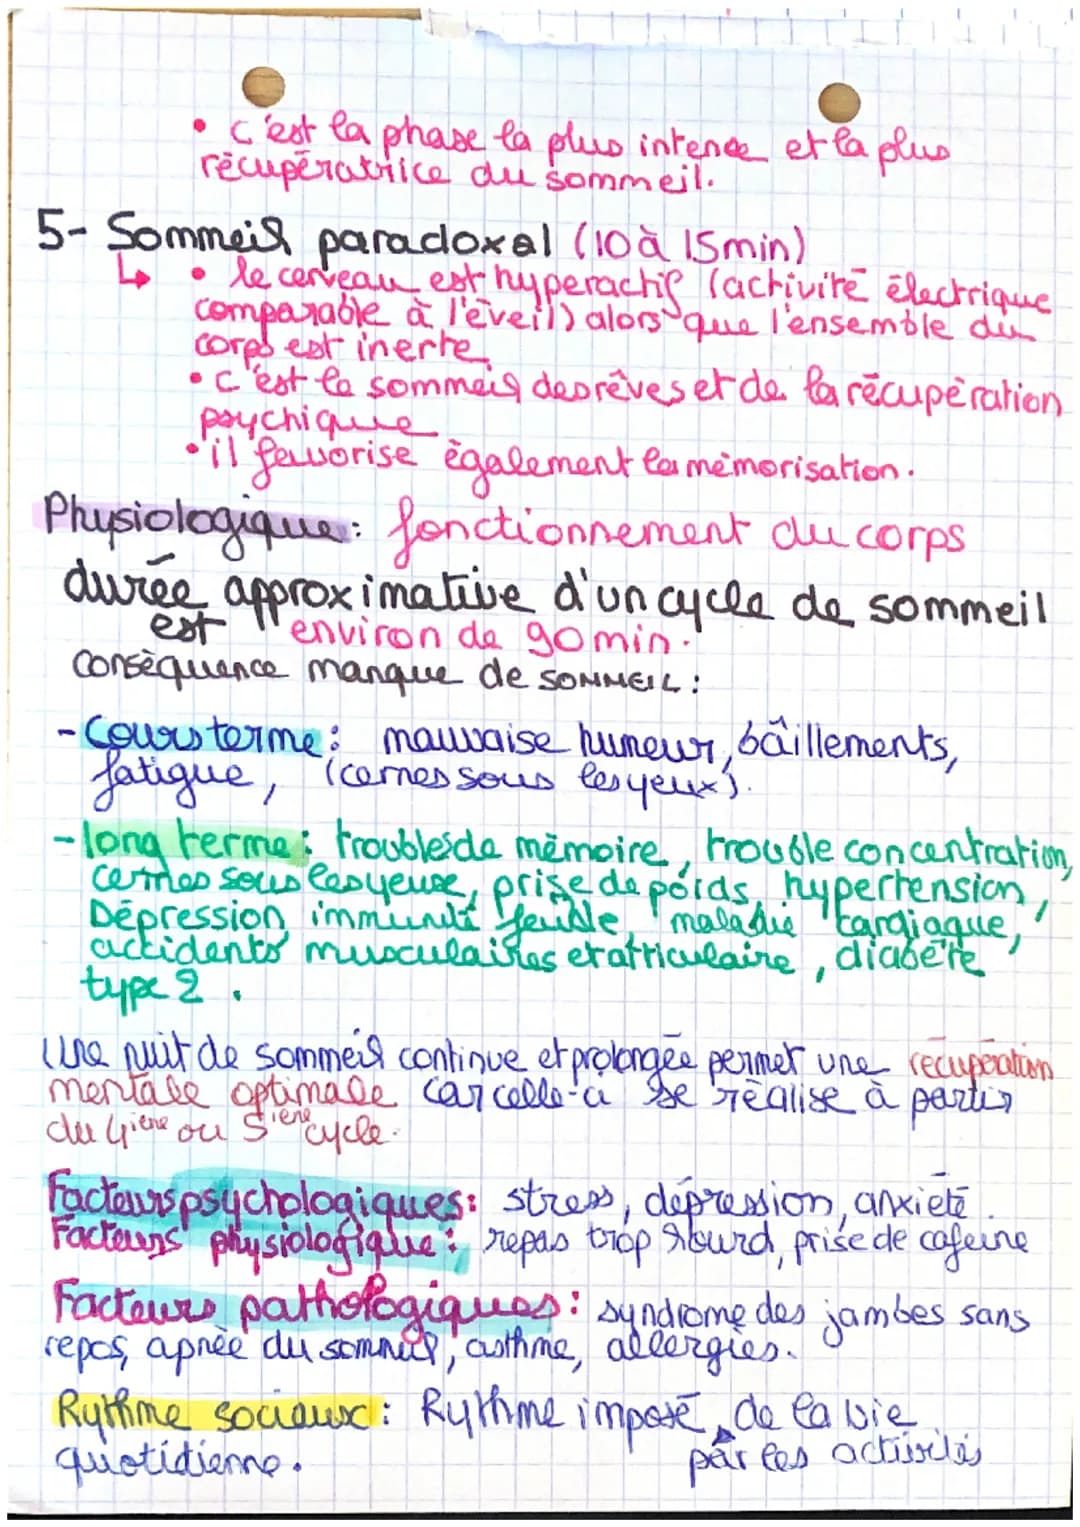 • c'est la phase la plus intense et la plus
récupératrice du sommeil.
5- Sommeil paradoxal (10 à 15min)
↳ • le cerveau est hyperactif (activité électrique
comparable à l'éveil) alors que l'ensemble du
corps est inerte
• c'est le sommeil des rêves et de la récupération
psychique
• il favorise également la mémorisation.
Physiologique : fonctionnement du corps
durée approximative d'un cycle de sommeil
est environ de 90 min.
conséquence manque de SOMMEIL :
- Cours terme : mauvaise humeur, bâillements,
fatigue, (cernes sous les yeux).
- long terme : troubles de mémoire, trouble concentration,
cernes sous les yeux, prise de poids, hypertension,
Dépression, immunité faible, maladie cardiaque,
accidents musculaires et atriculaire, diabète
type 2.
Une nuit de sommeil continue et prolongée permet une récupération
mentale optimale car celle-ci se réalise à partir
du 4ième ou 5ième cycle.
Facteurs psychologiques : stress, dépression, anxiété.
Facteurs physiologique : repas trop lourd, prise de cafeine
Facteurs pathologiques : syndrome des jambes sans
repos, apnée du sommeil, asthme, allergies.
Rythme sociaux : Rythme imposé de la vie
quotidienne. par les activités